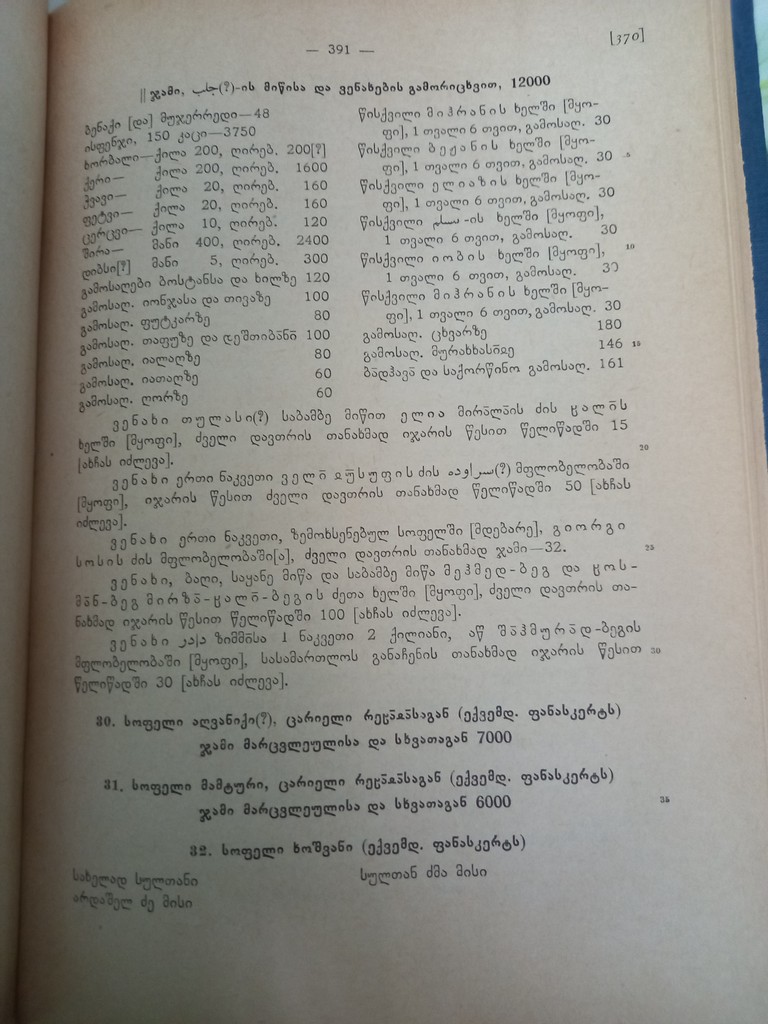 — 391 —
[370]
|| ჯამი, جلب(?)-ის მიწისა და ვენახების გამორიცხვით, 12000
ბენაქი [და] მუჯერრედი—48
ისფენჯი, 150 კაცი—3750
ხორბალი—ქილა 200, ღირებ. 200[?]
ქერი— ქილა 200, ღირებ. 1600
ჭვავი— ქილა 20, ღირებ. 160
ფეტვი— ქილა 20, ღირებ. 160
ცერცვი— ქილა 10, ღირებ. 120
შირა— მანი 400, ღირებ. 2400
დიბსი[?] მანი 5, ღირებ. 300
გამოსაღები ბოსტანსა და ხილზე 120
გამოსაღ. იონჯასა და თივაზე 100
გამოსაღ. ფუტკარზე 80
გამოსაღ. თაფუზე და დეშთიბანი̄ 100
გამოსაღ. იალაღზე 80
გამოსაღ. იათაღზე 60
გამოსაღ. ღორზე 60
წისქვილი მიჰრანის ხელში [მყო-
ფი], 1 თვალი 6 თვით, გამოსაღ. 30
წისქვილი ბეჟანის ხელში [მყო-
ფი], 1 თვალი 6 თვით, გამოსაღ. 30 5
წისქვილი ელიაზის ხელში [მყო-
ფი], 1 თვალი 6 თვით, გამოსაღ. 30
წისქვილი مسلم-ის ხელში [მყოფი],
1 თვალი 6 თვით, გამოსაღ. 30
წისქვილი იობის ხელში [მყოფი], 10
1 თვალი 6 თვით, გამოსაღ. 30
წისქვილი მიჰრანის ხელში [მყო-
ფი], 1 თვალი 6 თვით, გამოსაღ. 30
გამოსაღ. ცხვარზე 180
გამოსაღ. მურახხასი̄ჲე 146 15
ბა̄დჰავა̄ და საქორწინო გამოსაღ. 161
ვენახი თულასი(?) საბამბე მიწით ელია მირა̄ლა̄ის ძის ყალი̄ს
ხელში [მყოფი], ძველი დავთრის თანახმად იჯარის წესით წელიწადში 15
[ახჩას იძლევა]. 20
ვენახი ერთი ნაკვეთი ველი̄ ჲუ̄სუფის ძის سراوده(?) მფლობელობაში
[მყოფი], იჯარის წესით ძველი დავთრის თანახმად წელიწადში 50 [ახჩას
იძლევა].
ვენახი ერთი ნაკვეთი, ზემოხსენებულ სოფელში [მდებარე], გიორგი
სოსის ძის მფლობელობაში[ა], ძველი დავთრის თანახმად ჯამი—32. 25
ვენახი, ბაღი, საყანე მიწა და საბამბე მიწა მეჰმედ-ბეგ და ყოს-
მა̄ნ-ბეგ მირზა̄-ყალი̄-ბეგის ძეთა ხელში [მყოფი], ძველი დავთრის თა-
ნახმად იჯარის წესით წელიწადში 100 [ახჩას იძლევა].
ვენახი ზიმმი̄სა 1 ნაკვეთი 2 ქილიანი, აწ შა̄ჰმურა̄დ-ბეგის
მფლობელობაში [მყოფი], სასამართლოს განაჩენის თანახმად იჯარის წესით 30
წელიწადში 30 [ახჩას იძლევა].
30. სოფელი აღვანიქი(?), ცარიელი რეყა̄ჲა̄საგან (ექვემდ. ფანასკერტს)
ჯამი მარცვლეულისა და სხვათაგან 7000
31. სოფელი მამტური, ცარიელი რეყა̄ჲა̄საგან (ექვემდ. ფანასკერტს)
ჯამი მარცვლეულისა და სხვათაგან 6000 35
32. სოფელი ხოშვანი (ექვემდ. ფანასკერტს)
სახელად სულთანი
არდაშელ ძე მისი
სულთან ძმა მისი